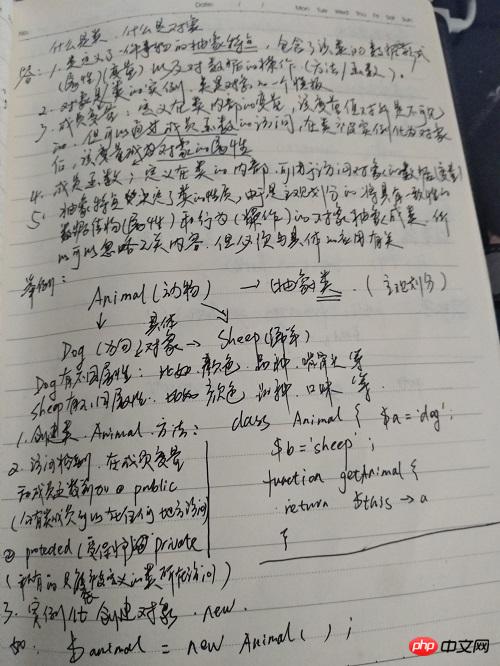 No.
Date: / /
Mon Tue Wed Thu Fri Sat Sun
什么是类.什么是对象
答: 1. 类定义了一件事物的抽象特点,包含了该类的数据形式
(属性)(变量)以及对数据的操作(方法/函数).
2. 对象是类的实例.类是对象的一个模板
3. 成员变量: 定义在类内部的变量,该变量值对外是不可见
的,但可以通过成员函数的访问,在类被实例化为对象
后,该变量成为对象的属性
4. 成员函数: 定义在类的内部,可用于访问对象的数据(变量)
5. 抽象特点决定了类的性质,由是主观划分的将具有一致性的
数据结构(属性)和行为(操作)的对象抽象成类.所
以可以忽略无关内容.但必须与具体的应用有关
举例:
Animal(动物) → 抽象类.(主观划分)
↓ 具体
Dog(方向)对象 → Sheep
Dog有不同属性: 比如 颜色.品种.啃骨头等
sheep有不同属性.比如 颜色 品种.口味 等.
1. 创建类.Animal.方法:
class Animal { $a='dog';
2. 访问控制.在成员变量
$b='sheep';
和成员函数前加 ① public
function getAnimal {
(公有类成员可以在任何地方访问)
return $this → a
② protected(受保护的) private
}
(私有的只能被定义的类所在访问)
3. 实例化 创建对象.new.
如. $animal = new Animal();
php中文网